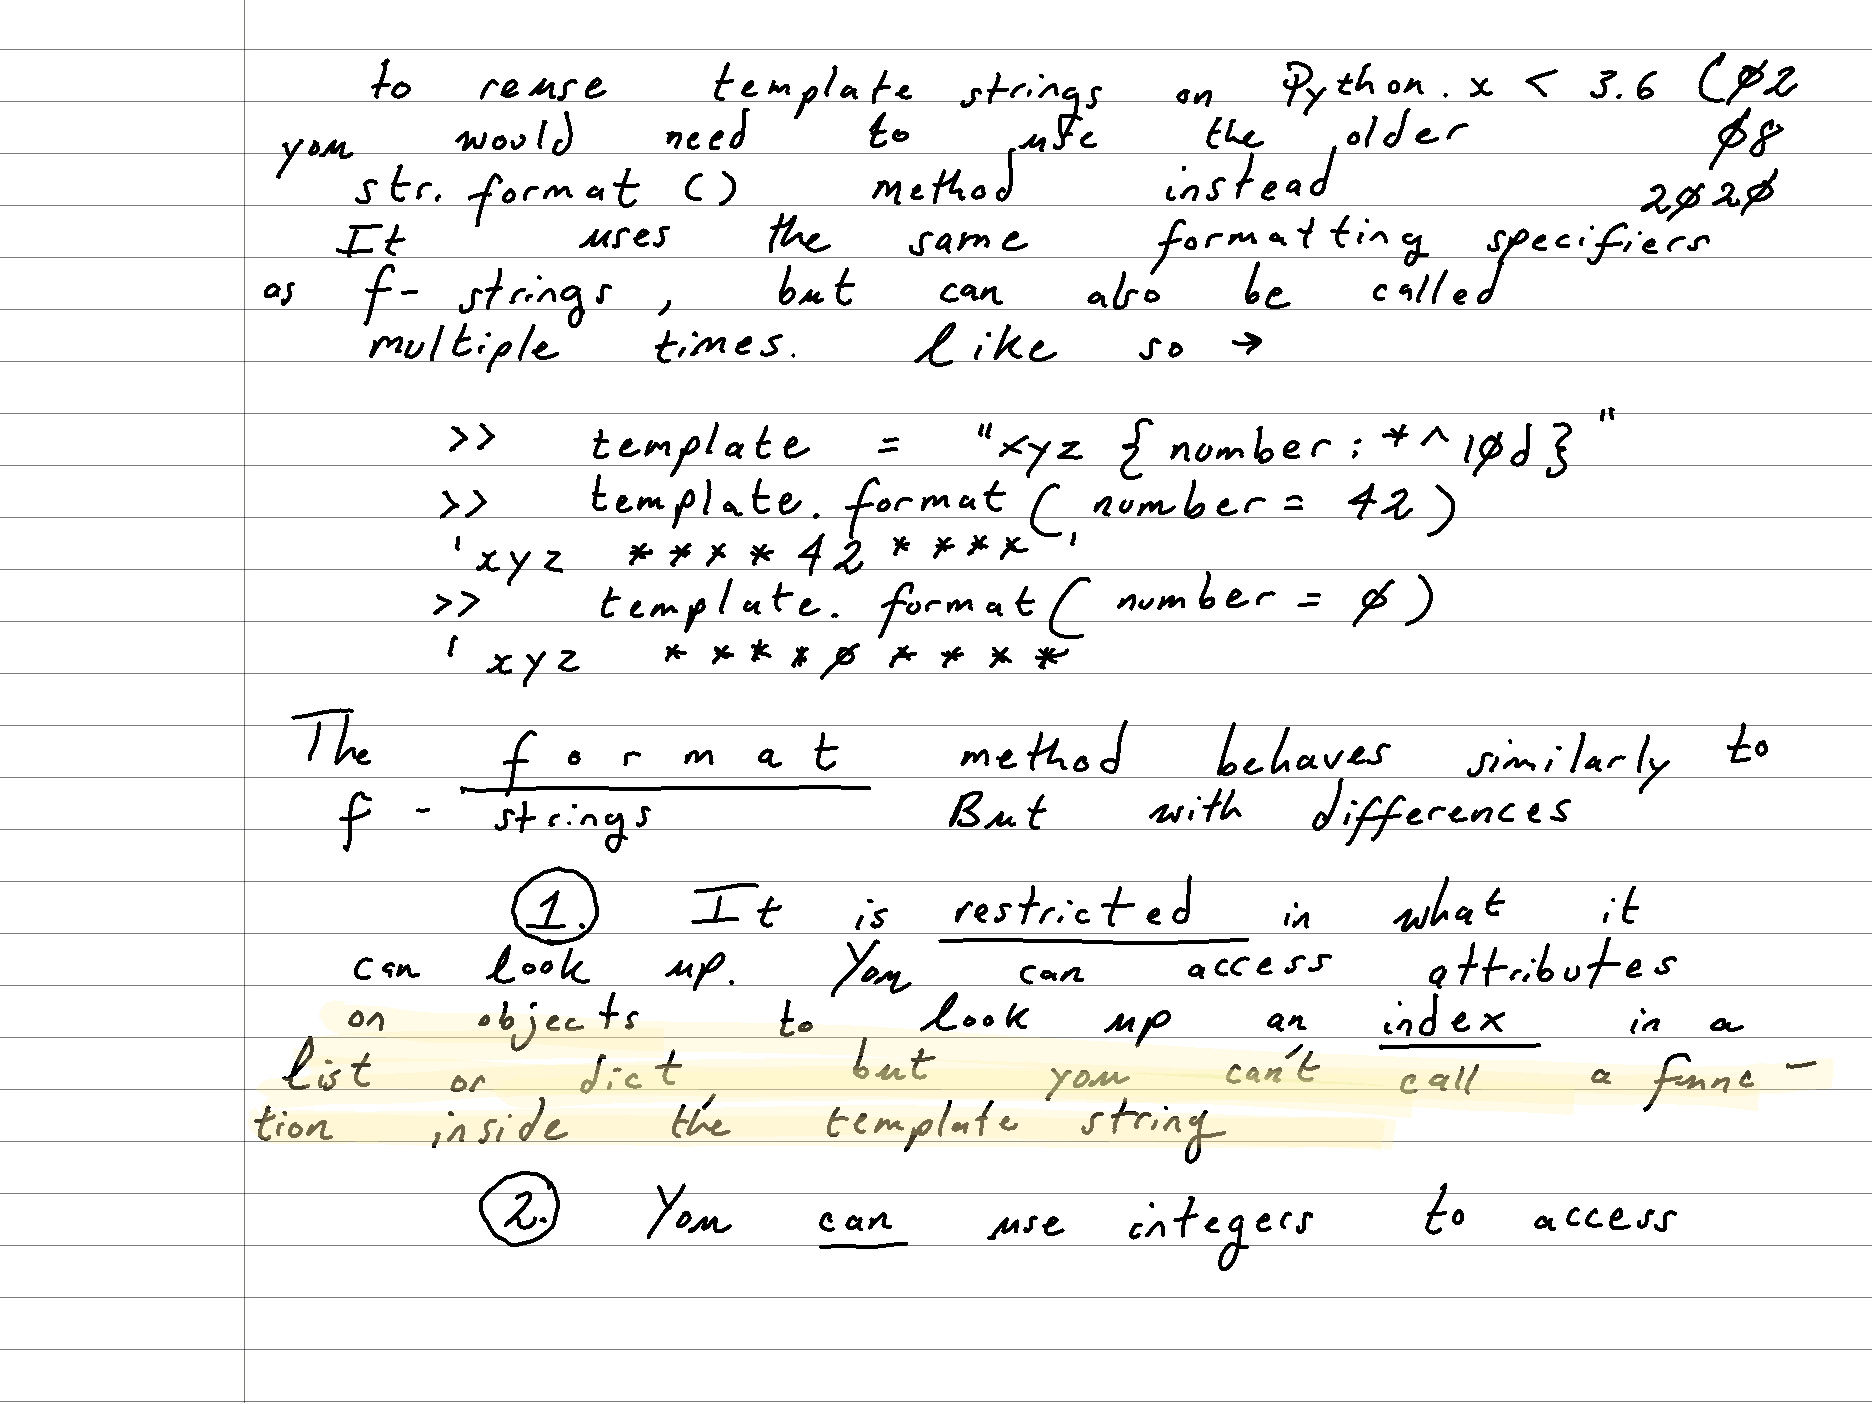 to reuse template strings on Python.x < 3.6 (02
you would need to use the older 08
str.format() method instead 2020
It uses the same formatting specifiers
as f-strings, but can also be called
multiple times. like so →
>> template = "xyz {number:*^10d}"
>> template.format(number = 42)
'xyz ****42****'
>> template.format(number = 0)
'xyz ****0****
The format method behaves similarly to
f-strings But with differences
1. It is restricted in what it
can look up. You can access attributes
on objects to look up an index in a
list or dict, but you can't call a func-
tion inside the template string
2. You can use integers to access